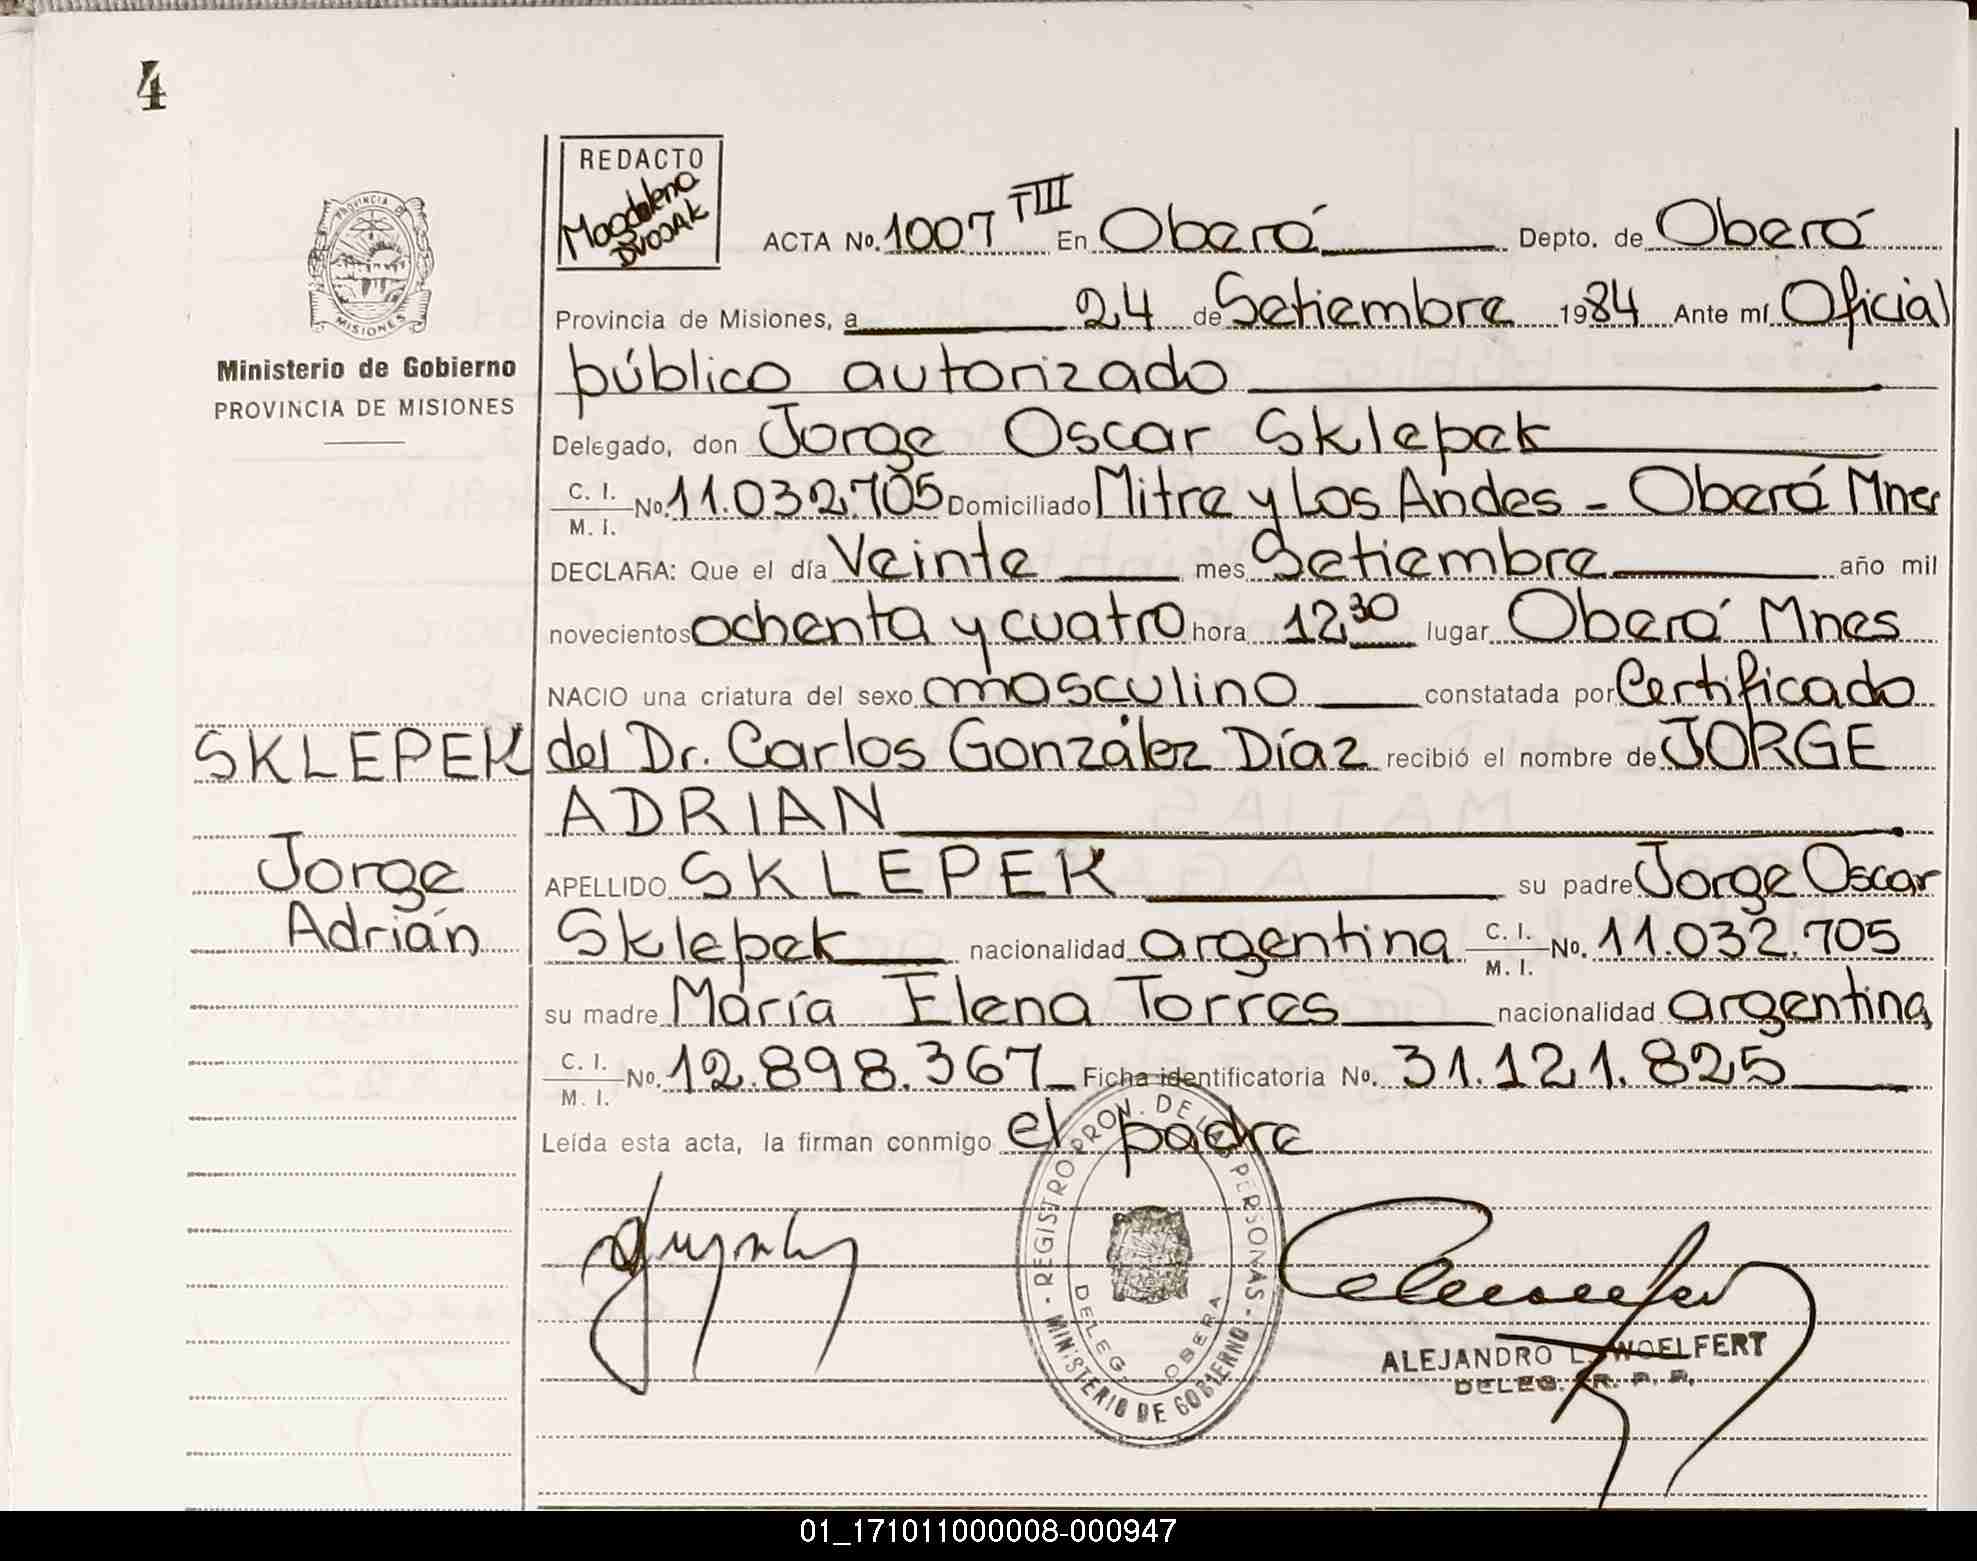 4
REDACTO
Magdalena
DVOJAK
PROVINCIA DE
MISIONES
Ministerio de Gobierno
PROVINCIA DE MISIONES
ACTA No. 1007 TIII En Oberá Depto. de Oberá
Provincia de Misiones, a 24 de Setiembre 1984 Ante mí Oficial
público autorizado
Delegado, don Jorge Oscar Sklepek
C. I. / M. I. No. 11.032.705 Domiciliado Mitre y Los Andes - Oberá Mnes
DECLARA: Que el día Veinte mes Setiembre año mil
novecientos ochenta y cuatro hora 12,30 lugar Oberá Mnes
NACIO una criatura del sexo masculino constatada por Certificado
SKLEPEK
del Dr. Carlos González Díaz recibió el nombre de JORGE
ADRIAN
Jorge
Adrián
APELLIDO SKLEPEK su padre Jorge Oscar
Sklepek nacionalidad argentina C. I. / M. I. No. 11.032.705
su madre María Elena Torres nacionalidad argentina
C. I. / M. I. No. 12.898.367 Ficha identificatoria No. 31.121.825
Leída esta acta, la firman conmigo el padre
REGISTRO PROV. DE LAS PERSONAS
DELEG. OBERA
MINISTERIO DE GOBIERNO
ALEJANDRO L. WOELFERT
DELEG. R. P. P.
01_171011000008-000947